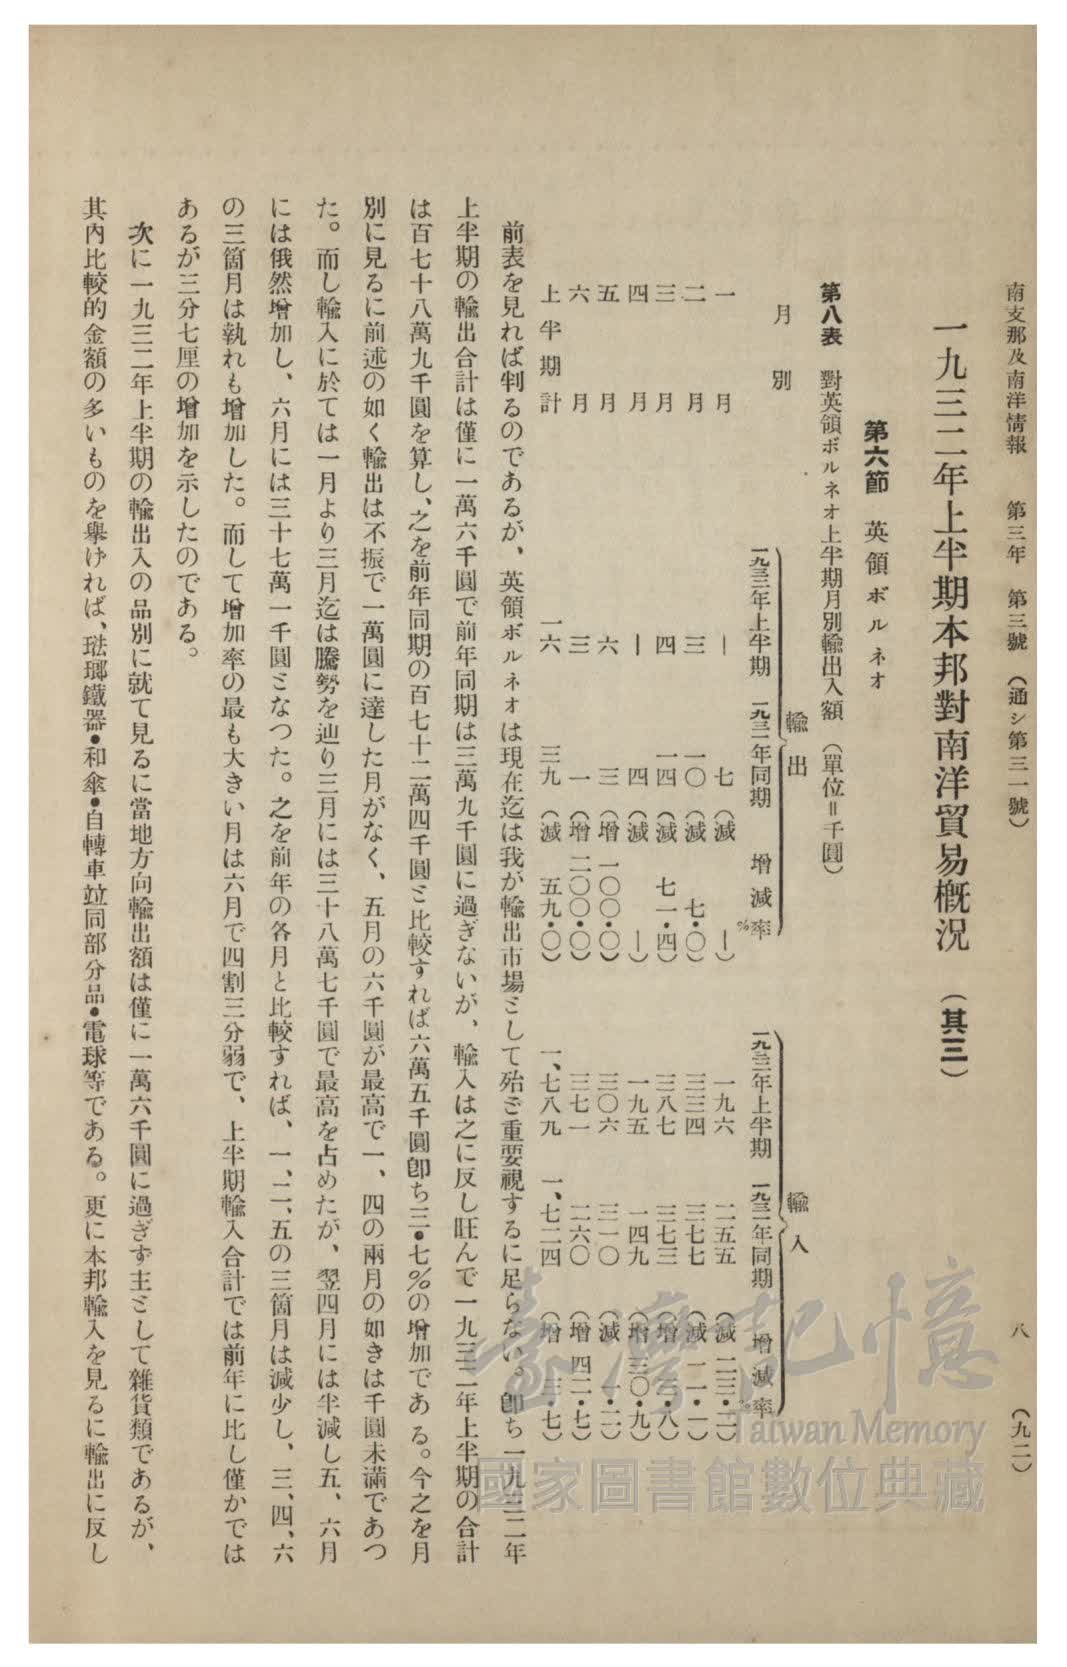 南支那及南洋情報　第三年　第三號　（通シ第三一號）　八　（九二）
一九三二年上半期本邦對南洋貿易槪況　（其三）
第六節　英領ボルネオ
第八表　對英領ボルネオ上半期月別輸出入額　（單位＝千圓）
輸出　輸入
月別　一九三二年上半期　一九三一年同期　增減率%　一九三二年上半期　一九三一年同期　增減率%
一月　―　七　（減　―）　一九六　二五五　（減　二三・二）
二月　三　一〇　（減　七・〇）　三三四　三七七　（減　一一・一）
三月　四　一四　（減　七一・四）　三八七　三七三　（增　三・八）
四月　―　四　（減　―）　一九五　一四九　（增　三〇・九）
五月　六　三　（增　一〇〇・〇）　三〇六　三一〇　（減　一・二）
六月　三　一　（增　二〇〇・〇）　三七一　二六〇　（增　四二・七）
上半期計　一六　三九　（減　五九・〇）　一、七八九　一、七二四　（增　三・七）
前表を見れば判るのであるが、英領ボルネオは現在迄は我が輸出市場として殆ど重要視するに足らない。卽ち一九三二年
上半期の輸出合計は僅に一萬六千圓で前年同期は三萬九千圓に過ぎないが、輸入は之に反し旺んで一九三二年上半期の合計
は百七十八萬九千圓を算し、之を前年同期の百七十二萬四千圓と比較すれば六萬五千圓卽ち三・七％の增加である。今之を月
別に見るに前述の如く輸出は不振で一萬圓に達した月がなく、五月の六千圓が最高で一、四の兩月の如きは千圓未滿であつ
た。而し輸入に於ては一月より三月迄は騰勢を辿り三月には三十八萬七千圓で最高を占めたが、翌四月には半減し五、六月
には俄然增加し、六月には三十七萬一千圓となつた。之を前年の各月と比較すれば、一、二、五の三箇月は減少し、三、四、六
の三箇月は孰れも增加した。而して增加率の最も大きい月は六月で四割三分弱で、上半期輸入合計では前年に比し僅かでは
あるが三分七厘の增加を示したのである。
次に一九三二年上半期の輸出入の品別に就て見るに當地方向輸出額は僅に一萬六千圓に過ぎず主として雜貨類であるが、
其內比較的金額の多いものを擧ければ、琺瑯鐵器・和傘・自轉車竝同部分品・電球等である。更に本邦輸入を見るに輸出に反し
臺灣記憶
Taiwan Memory
國家圖書館數位典藏